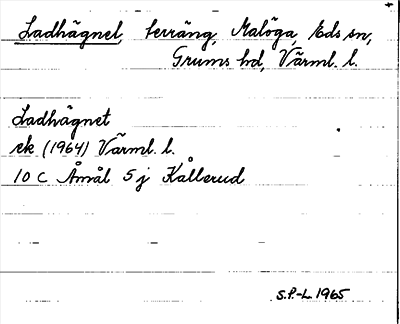 Ladhägnet, terräng, Malöga, Eds sn,
Grums hd, Värml. l.
Ladhägnet
ek (1964) Värml. l.
10 C Åmål 5 j Kållerud
S.P.-L 1965